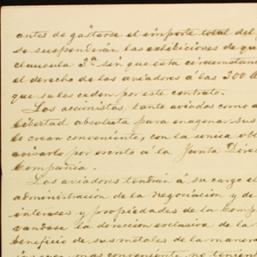 antes de gastarse el importe total del
se suspenderán las exhibiciones de que
clausula 3ª sin que esta circunstancia
el derecho de los aviadores á las 300 A
que se les ceden por este contrato.
Los accionistas tanto aviados como a
libertad absoluta para enagenar sus
lo crean conveniente, con la única obl
avisarlo por escrito á la Junta Direc
Compañia.
Los aviadores tendrán á su cargo el
administración de la negociación y de
intereses y propiedades de la Comp
vandose la dirección exclusiva de la
beneficio de sus metales de la manera
mas conveniente no tenien